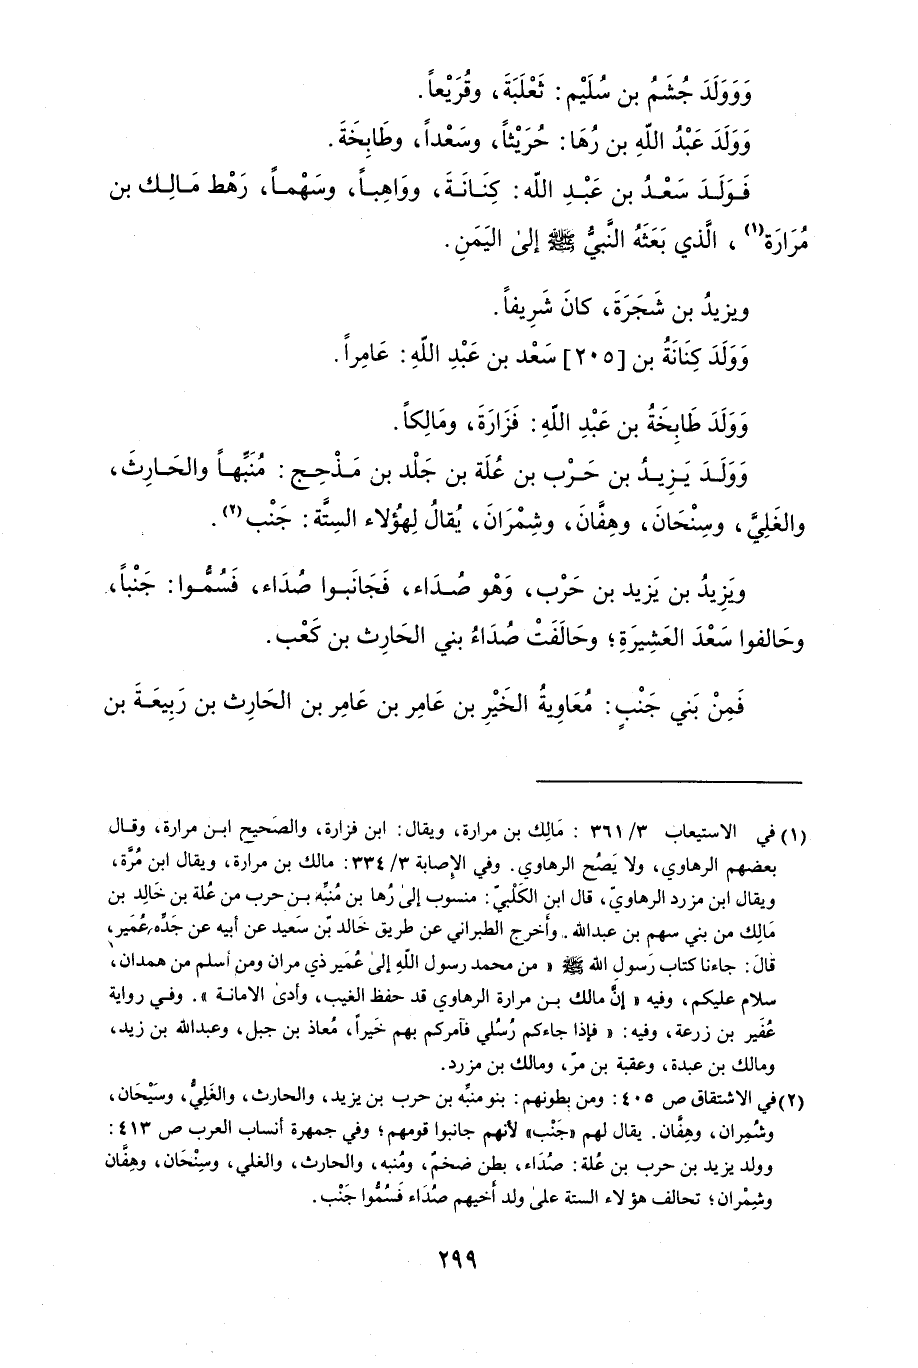 وَوَوَلَدَ جُشَمُ بن سُلَيْم: ثَعْلَبَةَ، وقُرَيْعاً.
وَوَلَدَ عَبْدُ اللّهِ بن رُهَا: حُرَيْثاً، وسَعْداً، وطَابِخَةَ.
فَوَلَدَ سَعْدُ بن عَبْدِ اللّه: كِنَانَةَ، ووَاهِباً، وسَهْماً، رَهْط مَالِك بن
مُرَارَة(١)، الَّذي بَعَثَهُ النَّبيُّ ﷺ إلىٰ اليَمَنِ.
ويزيدُ بن شَجَرَةَ، كانَ شَرِيفاً.
وَوَلَدَ كِنَانَةُ بن [٢٠٥] سَعْد بن عَبْدِ اللّهِ: عَامِراً.
وَوَلَدَ طَابِخَةُ بن عَبْدِ اللّهِ: فَزَارَةَ، ومَالِكاً.
وَوَلَدَ يَزِيدُ بن حَرْب بن عُلَة بن جَلْد بن مَذْحِج: مُنَبِّهاً والحَارِثَ،
والغَلِيَّ، وسِنْحَانَ، وهِفَّانَ، وشِمْرَانَ، يُقالُ لِهؤُلاء السِتَّة: جَنْب(٢).
ويَزِيدُ بن يَزيد بن حَرْب، وَهْو صُدَاء، فَجَانَبوا صُدَاء، فَسُمُّوا: جَنْباً،
وحَالفوا سَعْدَ العَشِيرَةِ؛ وحَالَفَتْ صُدَاءُ بني الحَارِث بن كَعْب.
فَمِنْ بَني جَنْبٍ: مُعَاوِيةُ الخَيْرِ بن عَامِر بن عَامِر بن الحَارِث بن رَبِيعَة بن
(١) في الاستيعاب ٣/ ٣٦١: مَالِك بن مرارة، ويقال: ابن فزارة، والصَحيح ابن مرارة، وقال
بعضهم الرهاوي، ولا يَصُح الرهاوي. وفي الإصابة ٣/ ٣٣٤: مالك بن مرارة، ويقال ابن مُرَّة،
ويقال ابن مزرد الرهاويّ، قال ابن الكَلْبيّ: منسوب إلىٰ رُها بن مُنَبِّه بن حرب من عُلة بن خَالِد بن
مَالِك من بني سهم بن عبدالله. وأخرج الطبراني عن طريق خَالد بّن سَعيد عن أبيه عن جَدِّه عُمَير،
قَالَ: جاءنا كتاب رَسولِ الله ﷺ « من محمد رسول اللّهِ إلىٰ عُمَير ذي مران ومن أسلم من همدان،
سلام عليكم، وفيه « إنَّ مالك بن مرارة الرهاوي قد حفظ الغيب، وأدىٰ الامانة ». وفي رواية
عُفَير بن زرعة، وفيه: « فإذا جاءكم رُسُلي فآمركم بهم خَيراً، مُعاذ بن جبل، وعبدالله بن زيد،
ومالك بن عبدة، وعقبة بن مرّ، ومالك بن مزرد.
(٢) في الاشتقاق ص ٤٠٥: ومن بطونهم: بنو منبِّه بن حرب بن يزيد، والحارث، والغَليُّ، وسَيْحَان،
وشُمِران، وهِفَّان. يقال لهم «جَنْب» لأنهم جانبوا قومهم؛ وفي جمهرة أنساب العرب ص ٤١٣:
وولد يزيد بن حرب بن عُلة: صُدَاء، بطن ضخمٌ، ومُنبه، والحارث، والغلي، وسِنْحَان، وهِفَّان
وشِمْران؛ تحالف هؤلاء الستة علىٰ ولد أخيهم صُدَاء فَسُمُّوا جَنْب.
٢٩٩